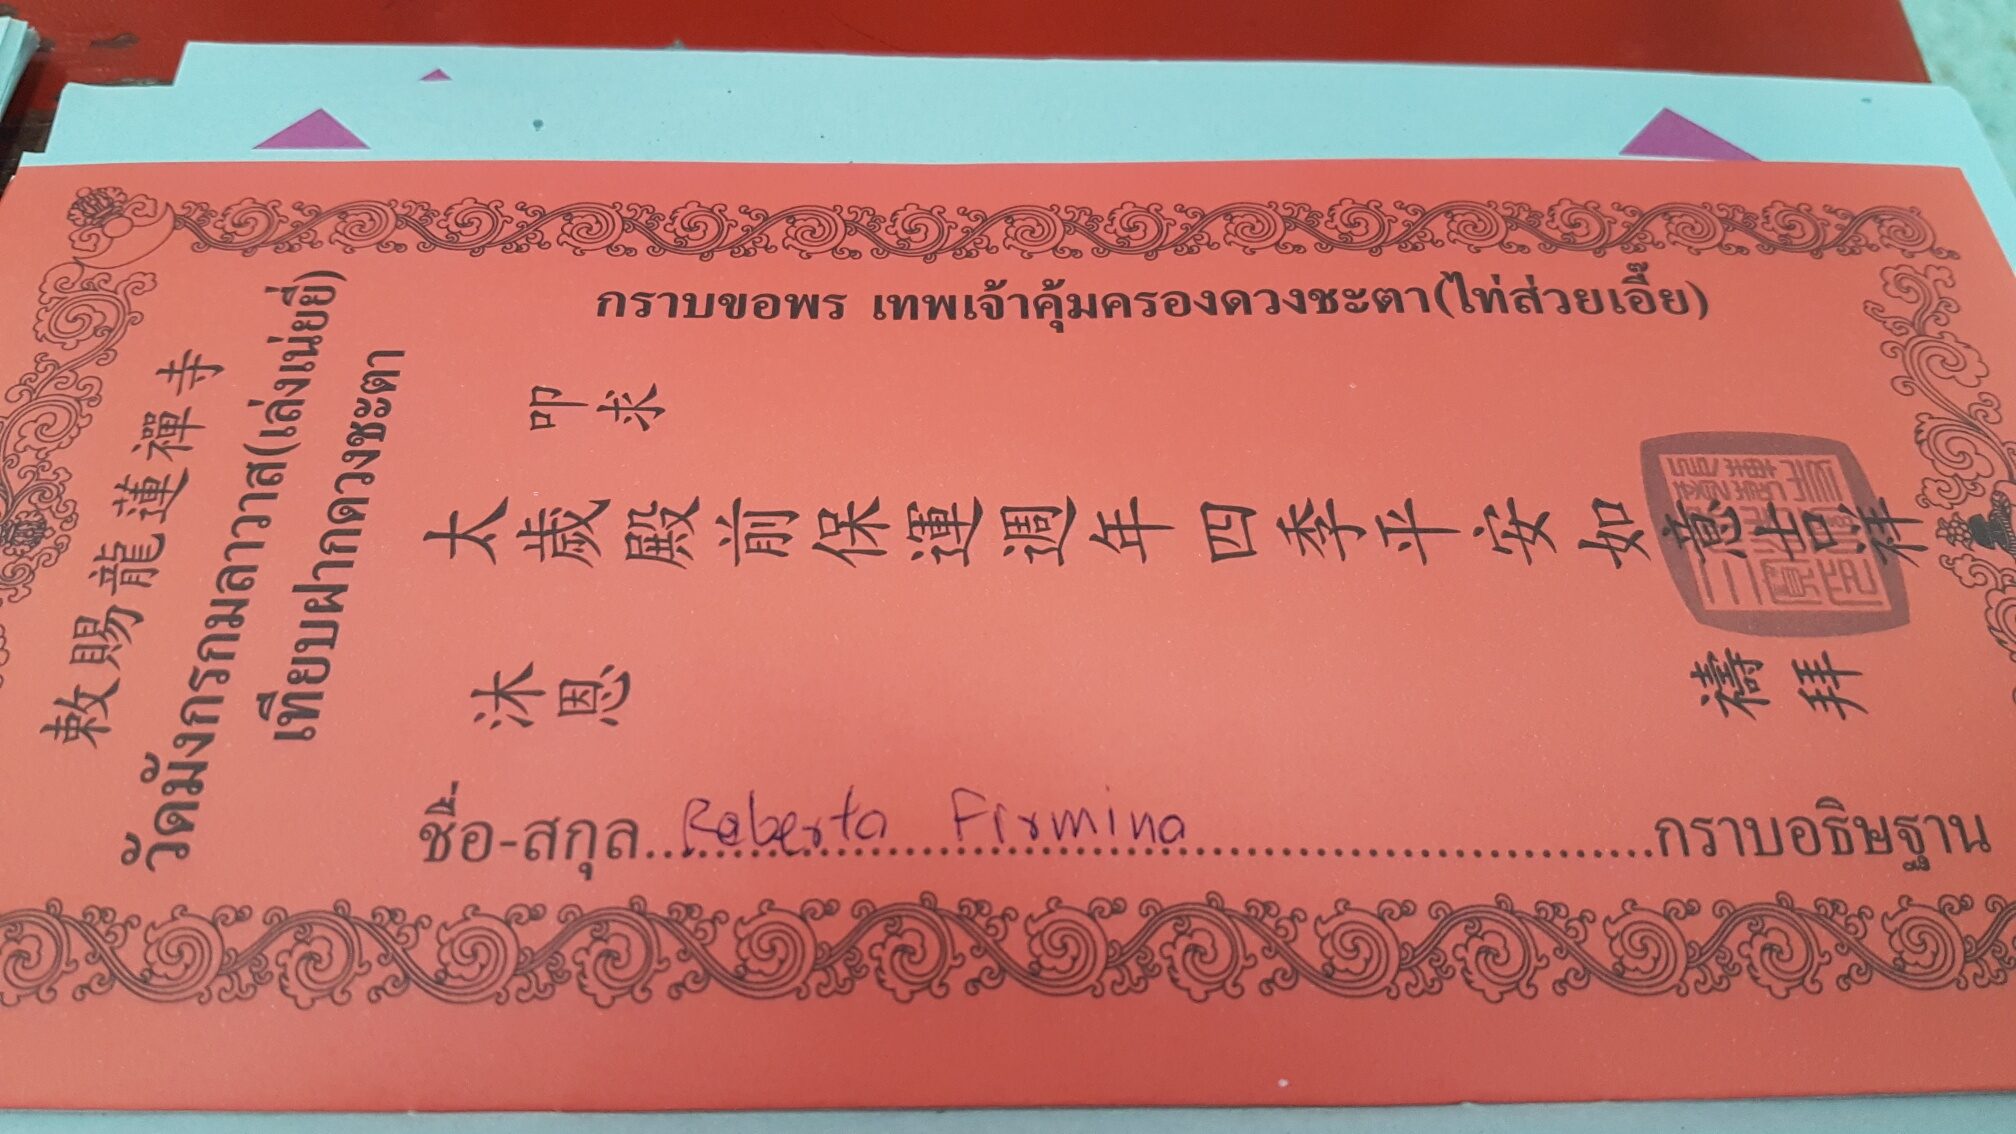 กราบขอพร เทพเจ้าคุ้มครองดวงชะตา(ไท่ส่วยเอี๊ย)
敕賜龍蓮禪寺
วัดมังกรกมลาวาส(เล่งเน่ยยี่)
เทียบฝากดวงชะตา
叩求
太歲殿前保運週年四季平安如意吉祥
沐恩
禱拜
ชื่อ-สกุล Roberto Firmino กราบอธิษฐาน